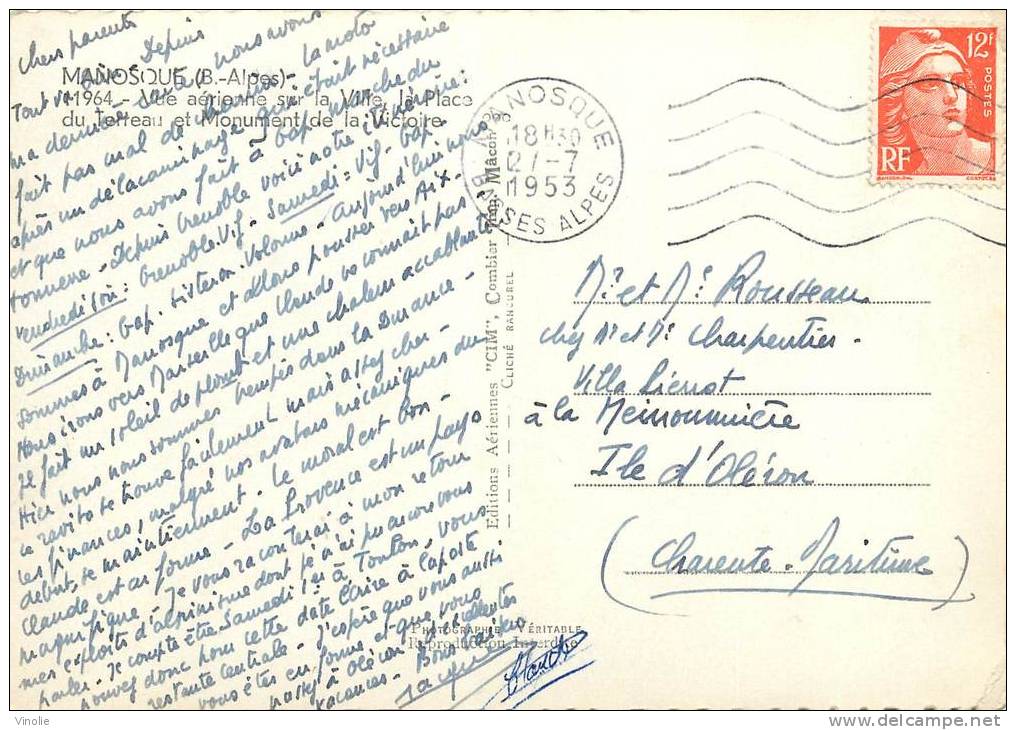 chers parents
Tout va bien. Depuis
ma dernière carte nous avons
fait pas mal de chemin. La moto
après un décalaminage qui était nécessaire
et que nous avons fait à Gap marche du
tonnerre. Depuis Grenoble voici notre itinéraire:
Vendredi soir: Grenoble. Vif. Samedi: Vif. Gap.
Dimanche: Gap. Sisteron. Volonne. Aujourd'hui nous
sommes à Manosque et allons pousser vers Aix.
Nous irons vers Marseille que Claude ne connait pas
Il fait un soleil de plomb et une chaleur accablante
Hier nous nous sommes trempés dans la Durance.
Le ravito se trouve facilement mais assez cher.
Les finances, malgré nos avatars mécaniques du
début, se maintiennent. Le moral est bon.
Claude est en forme. La Provence est un pays
magnifique. Je vous raconterai à mon retour
mes exploits d'alpinisme dont je n'ai pu encore vous
parler. Je compte être Samedi 1er à Toulon. Vous
pouvez donc pour cette date écrire à la poste
restante centrale. J'espère que vous aussi
vous êtes en forme et que vous
passez à Oléron d'excellentes
vacances. Bons baisers
Jacques
Claude
MANOSQUE (B.-Alpes)
11964 - Vue aérienne sur la Ville, la Place
du Terreau et Monument de la Victoire
Editions Aériennes "CIM", Combier Imp. Mâcon
CLICHÉ RANCUREL
PHOTOGRAPHIE VÉRITABLE
Reproduction Interdite
MANOSQUE
18H30
27-7
1953
BASSES ALPES
12F
POSTES
RF
Mr et Me Rousseau
chez Mr et Me Charpentier.
Villa Liénot
à la Meisounnière
Ile d'Oléron
(Charente-Maritime)
Vinolie
www.delcampe.net